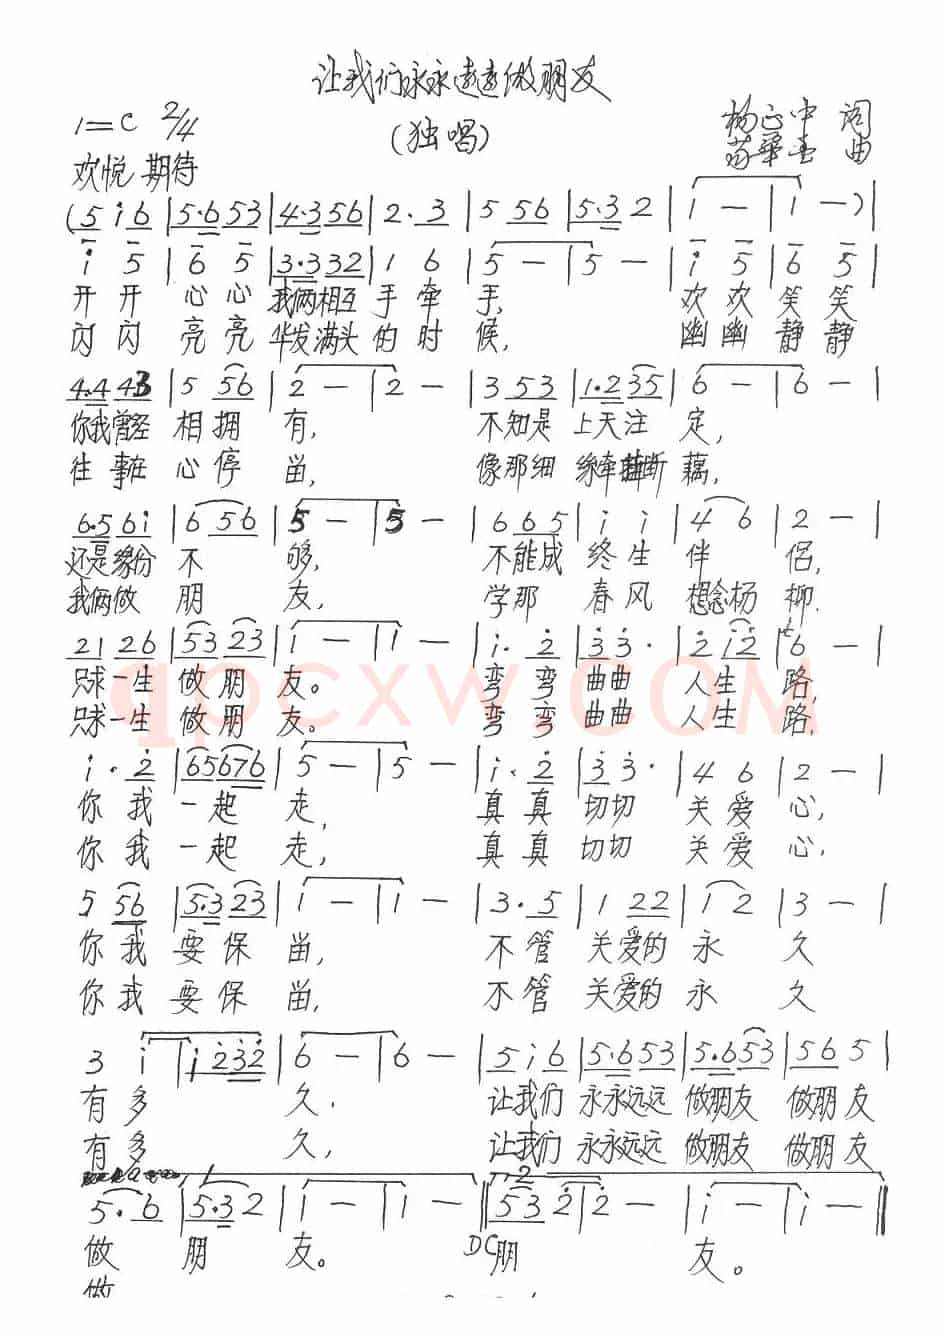 让我们永永远远做朋友
(独唱)
1=C 2/4
杨正中 词
曲
欢悦 期待
(5 i 6 | 5·6 53 | 4·3 56 | 2·3 | 5 56 | 5·3 2 | i — | i — ) |
i 5 | 6 5 | 3·3 32 | 1 6 | 5 — | 5 — | i 5 | 6 5 |
开开 心心 我俩相互 手牵 手, 欢欢 笑笑
闪闪 亮亮 华发满头 的时 候, 幽幽 静静
4·4 43 | 5 56 | 2 — | 2 — | 3 53 | 1·2 35 | 6 — | 6 — |
你我曾经 相拥 有, 不知是 上天注 定,
往事在 心停 留, 像那细 断 藕,
6·5 6i | 6 56 | 5 — | 5 — | 6 65 | i i | 4 6 | 2 — |
还是缘份 不 够, 不能成 终生 伴 侣,
我俩做 朋 友, 学那 春风 想念杨 柳.
21 26 | 53 23 | i — | i — | i· 2 | 3 3· | 2 i2 | 6 — |
只求一生 做朋 友。 弯弯 曲曲 人生 路,
只求一生 做朋 友。 弯弯 曲曲 人生 路,
qpcxw.COM
i· 2 | 65676 | 5 — | 5 — | i· 2 | 3 3· | 4 6 | 2 — |
你我 一起 走, 真真 切切 关爱 心,
你我 一起 走, 真真 切切 关爱 心,
5 56 | 5·3 23 | i — | i — | 3·5 | 1 22 | 1 2 | 3 — |
你我 要保 留, 不管 关爱的 永 久
你我 要保 留, 不管 关爱的 永 久
3 i | i 232 | 6 — | 6 — | 5 i 6 | 5·6 53 | 5·6 53 | 56 5 |
有多 久. 让我们 永永远远 做朋友 做朋友
有多 久, 让我们 永永远远 做朋友 做朋友
1 2
5· 6 | 5·3 2 | i — | i — || 53 2 | 2 — | i — | i — ||
做 朋 友。 DC 朋 友。
做